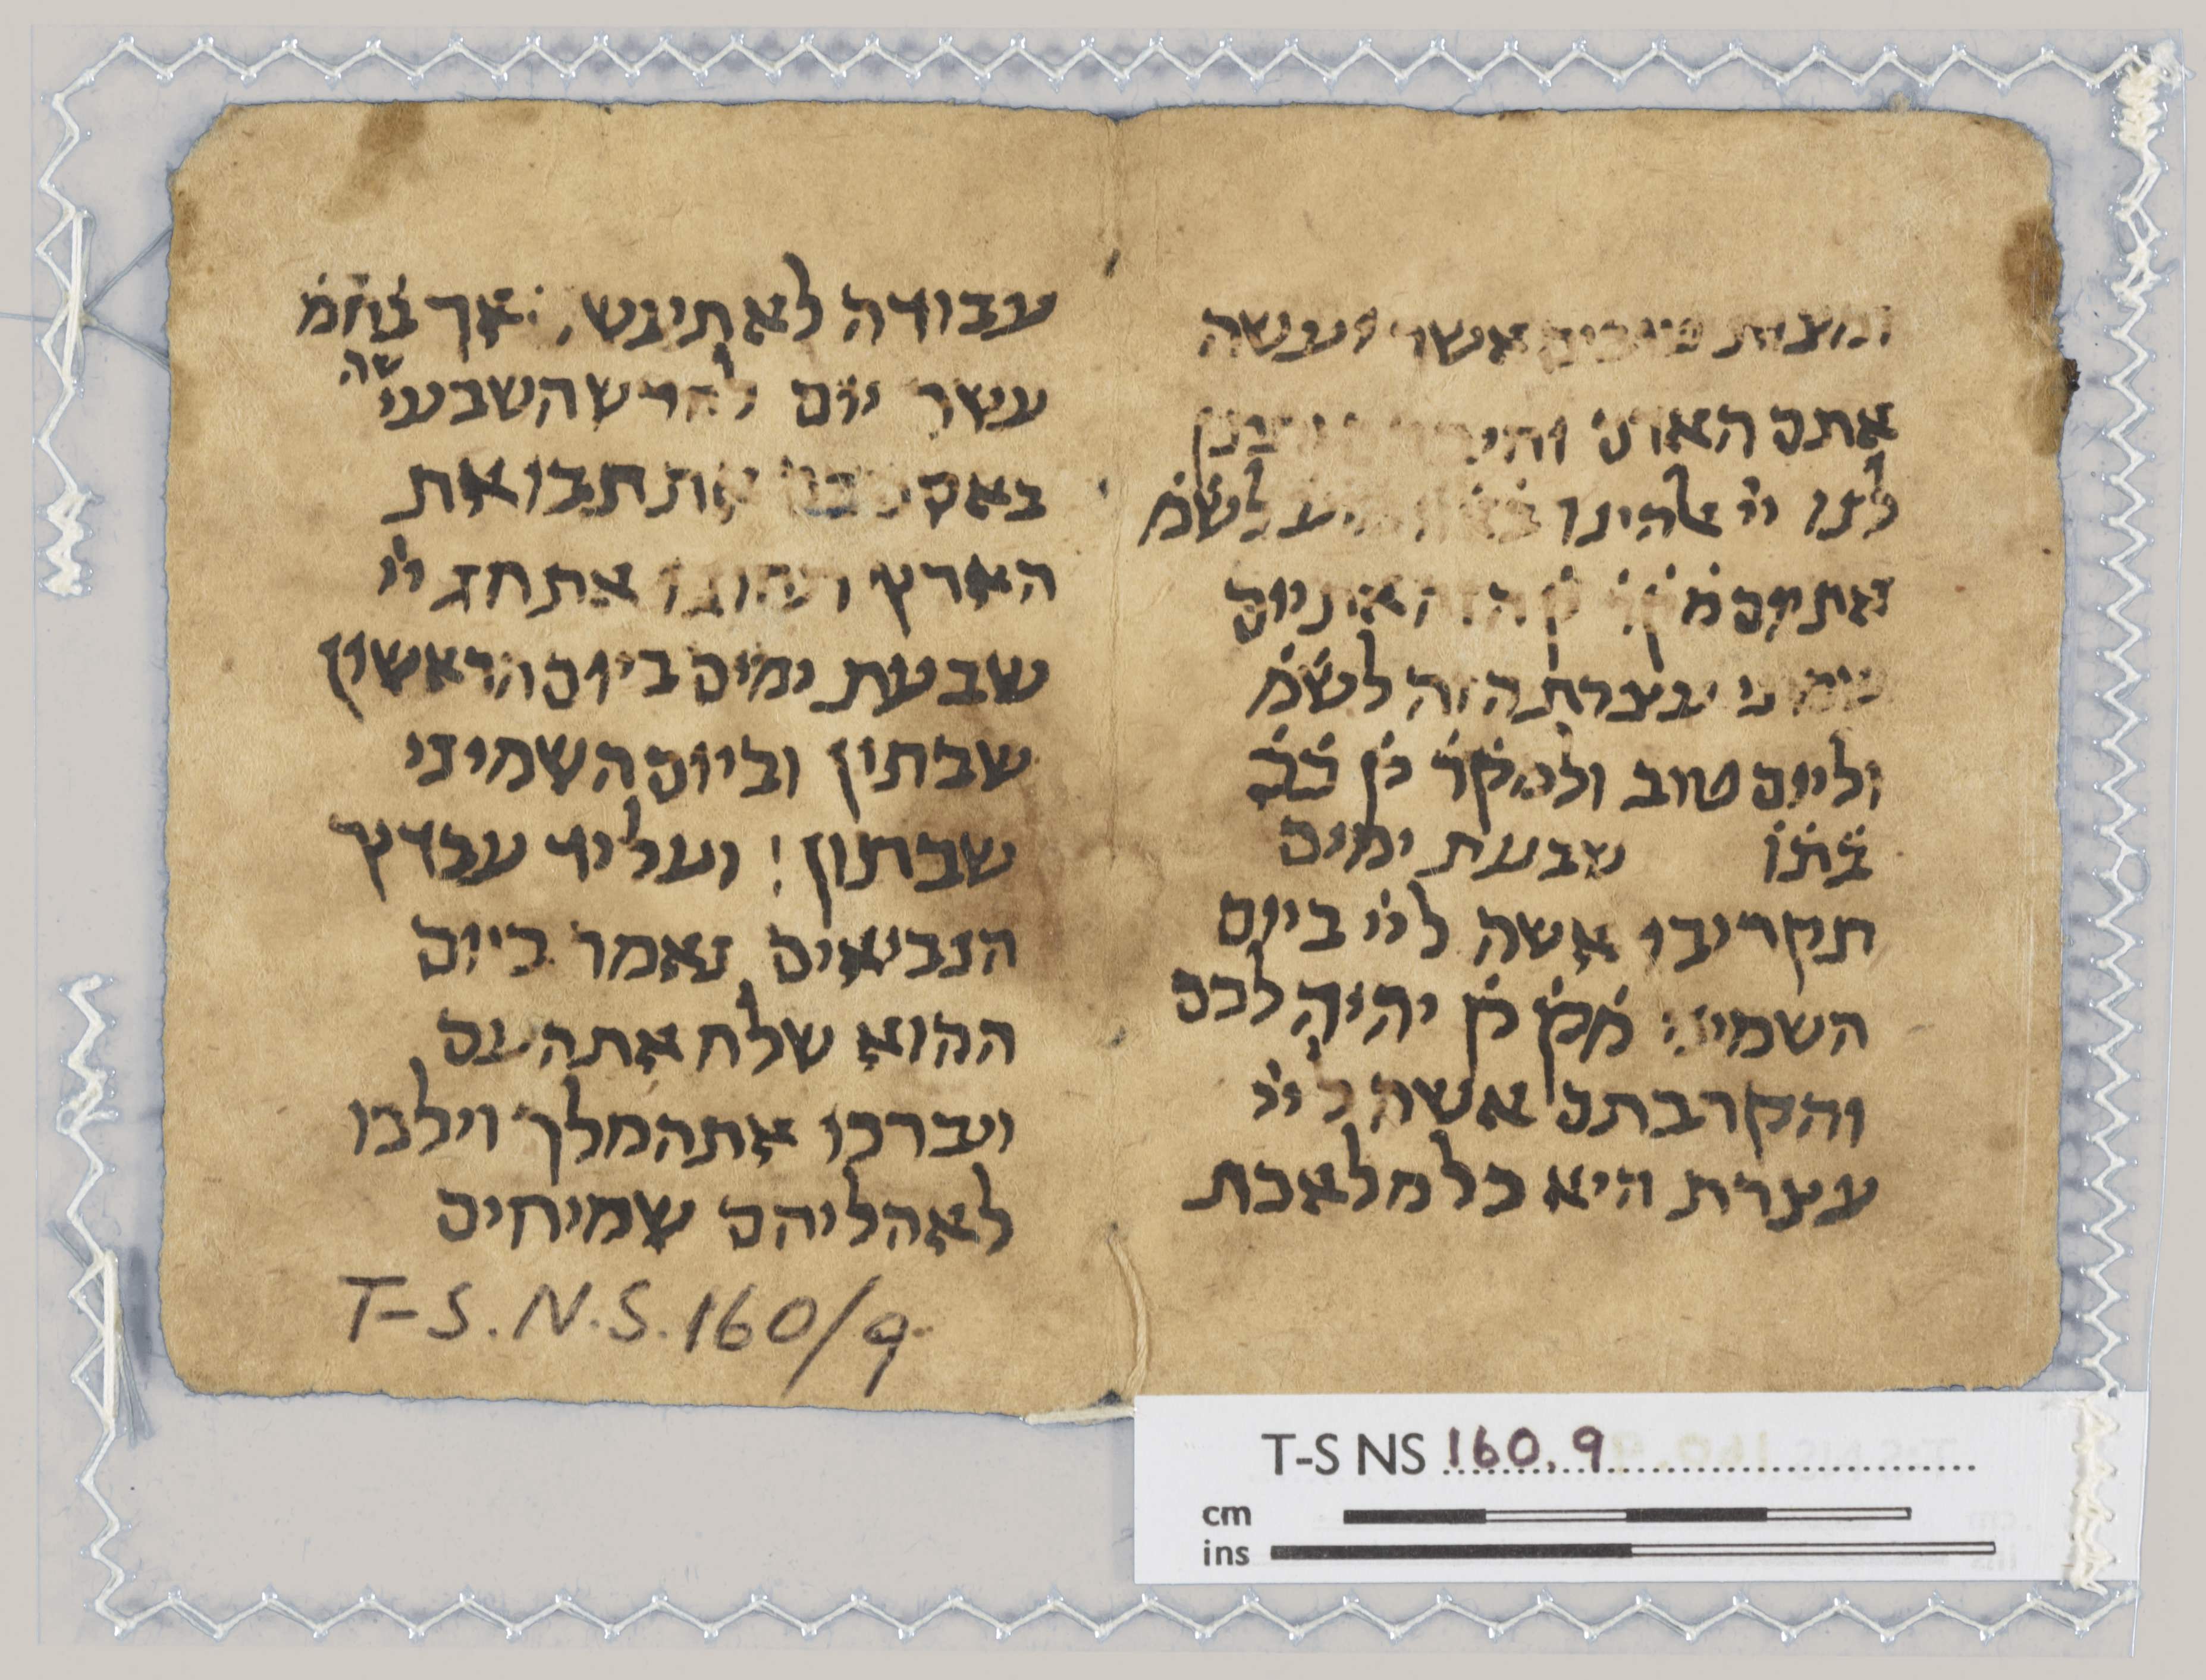 ומצות טובים אשר יעשה
אתם האדם וחי בהם ותתן
לנו ייי אלהינו לשמ
את יום מק ק הזה את יום
שמיני עצרת הזה לשמ
וליום טוב ולמקר קן ככ
בתו שבעת ימים
תקריבו אשה לייי ביום
השמיני מק ק יהיה לכם
והקרבתם אשה לייי
עצרת היא כל מלאכת
עבודה לא תיעש : אך בחמ
עשר יום לחדש השבעי
שה
באספכם את תבואת
הארץ תחוגו את חג ייי
שבעת ימים ביום הראשון
שבתון וביום השמיני
שבתון : ועל יד עבדיך
הנביאים נאמר ביום
ההוא שלח את העם
ויברכו את המלך וילכו
לאהליהם שמיחים
T-S.N.S.160/9
T-S NS 160.9
cm
ins